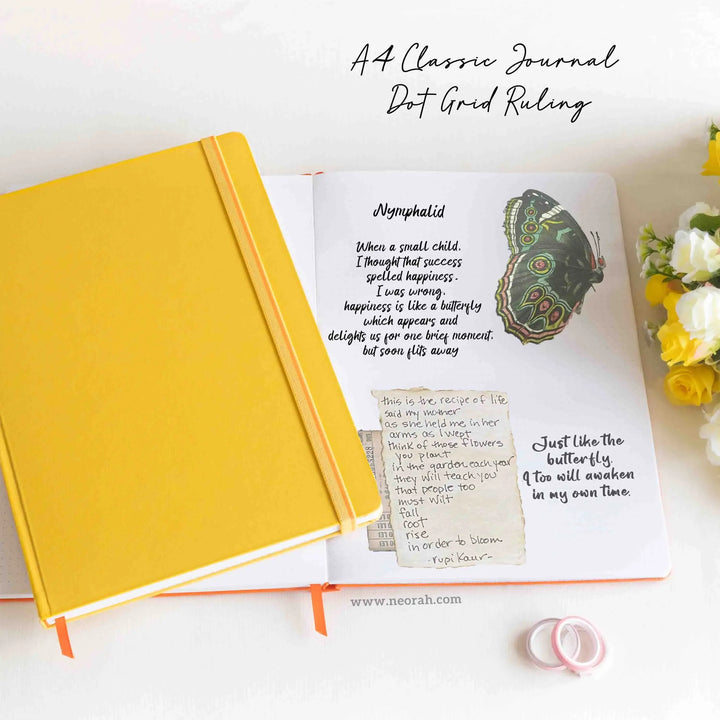 A4 Classic Journal
Dot Grid Ruling
Nymphalid
When a small child,
I thought that success
spelled happiness.
I was wrong,
happiness is like a butterfly
which appears and
delights us for one brief moment,
but soon flits away
this is the recipe of life
said my mother
as she held me in her
arms as I wept
think of those flowers
you plant
in the garden each year
they will teach you
that people too
must wilt
fall
root
rise
in order to bloom
-rupi Kaur-
Just like the
butterfly,
I too will awaken
in my own time.
www.neorah.com